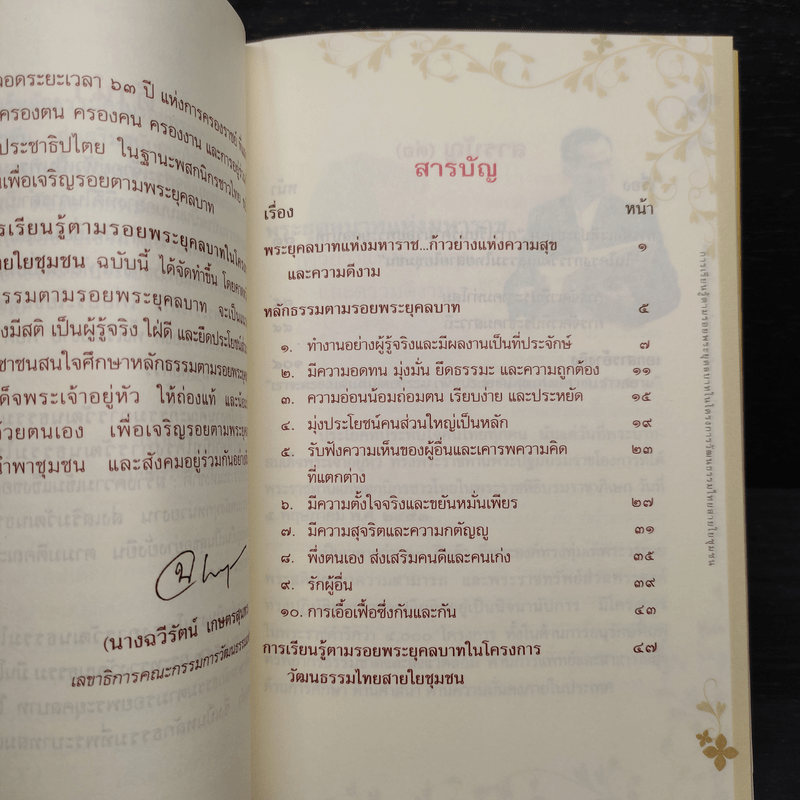 ลอดระยะเวลา ๖๓ ปี แห่งการครองราชย์
ครองตน ครองคน ครองงาน และการอยู่
ประชาธิปไตย ในฐานะพสกนิกรชาวไทย
เพื่อเจริญรอยตามพระยุคลบาท
รเรียนรู้ตามรอยพระยุคลบาทในโครง
ายใยชุมชน ฉบับนี้ ได้จัดทำขึ้น โดยคาด
ธรรมตามรอยพระยุคลบาท จะเป็น
งมีสติ เป็นผู้รู้จริง ใฝ่ดี และยึดประโยชน์
ชาชนสนใจศึกษาหลักธรรมตามรอยพระยุ
ด็จพระเจ้าอยู่หัว ให้ถ่องแท้ และน้อม
ด้วยตนเอง เพื่อเจริญรอยตามพระยุค
ำพาชุมชน และสังคมอยู่ร่วมกันอย่าง
(นางฉวีรัตน์ เกษตรสุนทร
เลขาธิการคณะกรรมการวัฒนธรรม
สารบัญ
เรื่อง หน้า
พระยุคลบาทแห่งมหาราช...ก้าวย่างแห่งความสุข ๑
และความดีงาม
หลักธรรมตามรอยพระยุคลบาท ๕
๑. ทำงานอย่างผู้รู้จริงและมีผลงานเป็นที่ประจักษ์ ๗
๒. มีความอดทน มุ่งมั่น ยึดธรรมะ และความถูกต้อง ๑๑
๓. ความอ่อนน้อมถ่อมตน เรียบง่าย และประหยัด ๑๕
๔. มุ่งประโยชน์คนส่วนใหญ่เป็นหลัก ๑๙
๕. รับฟังความเห็นของผู้อื่นและเคารพความคิด ๒๓
ที่แตกต่าง
๖. มีความตั้งใจจริงและขยันหมั่นเพียร ๒๗
๗. มีความสุจริตและความกตัญญู ๓๑
๘. พึ่งตนเอง ส่งเสริมคนดีและคนเก่ง ๓๕
๙. รักผู้อื่น ๓๙
๑๐. การเอื้อเฟื้อซึ่งกันและกัน ๔๓
การเรียนรู้ตามรอยพระยุคลบาทในโครงการ ๔๗
วัฒนธรรมไทยสายใยชุมชน
การเรียนรู้ตามรอยพระยุคลบาทในโครงการวัฒนธรรมไทยสายใยชุมชน